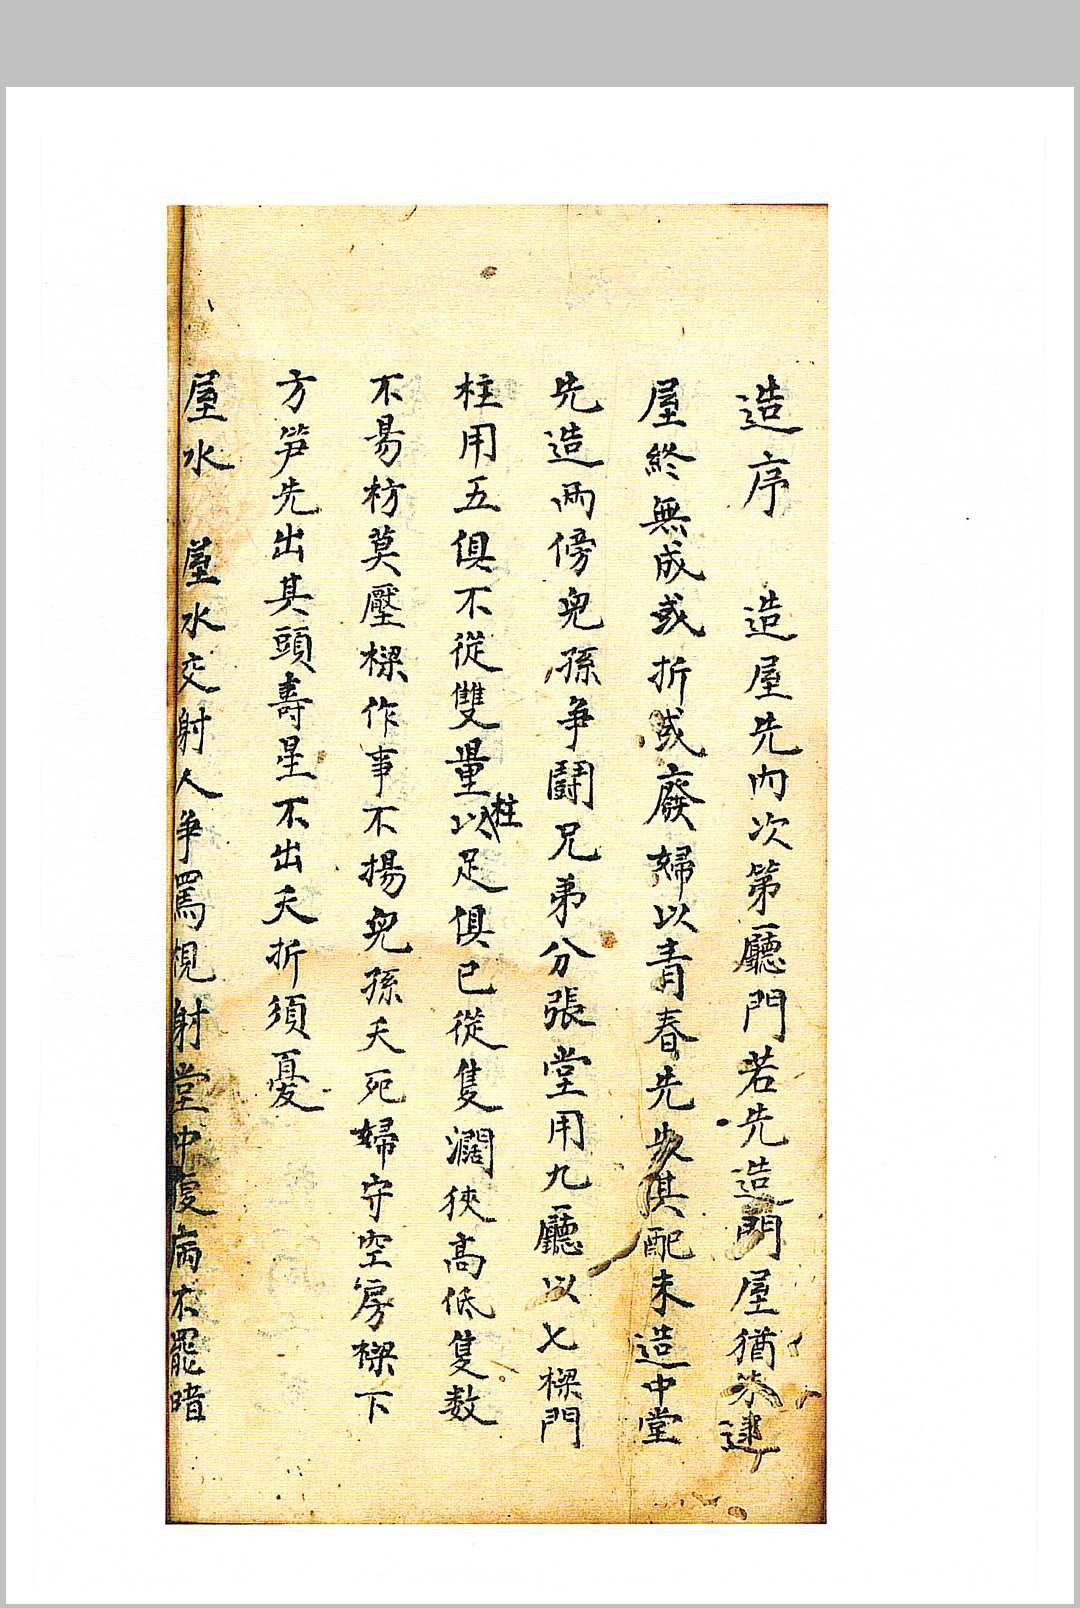 造序 造屋先內次第廳門若先造門屋猶未建
屋終無成或折或廢婦以青春先失其配未造中堂
先造兩傍兒孫爭鬪兄弟分張堂用九廳以七樑門
柱用五俱不從雙量以柱足俱已從隻濶狹高低隻数
不昜枋莫壓樑作事不揚兒孫夭死婦守空房樑下
方笋先出其頭壽星不出夭折須憂
屋水 屋水交射人爭罵視射堂中復病不罷暗